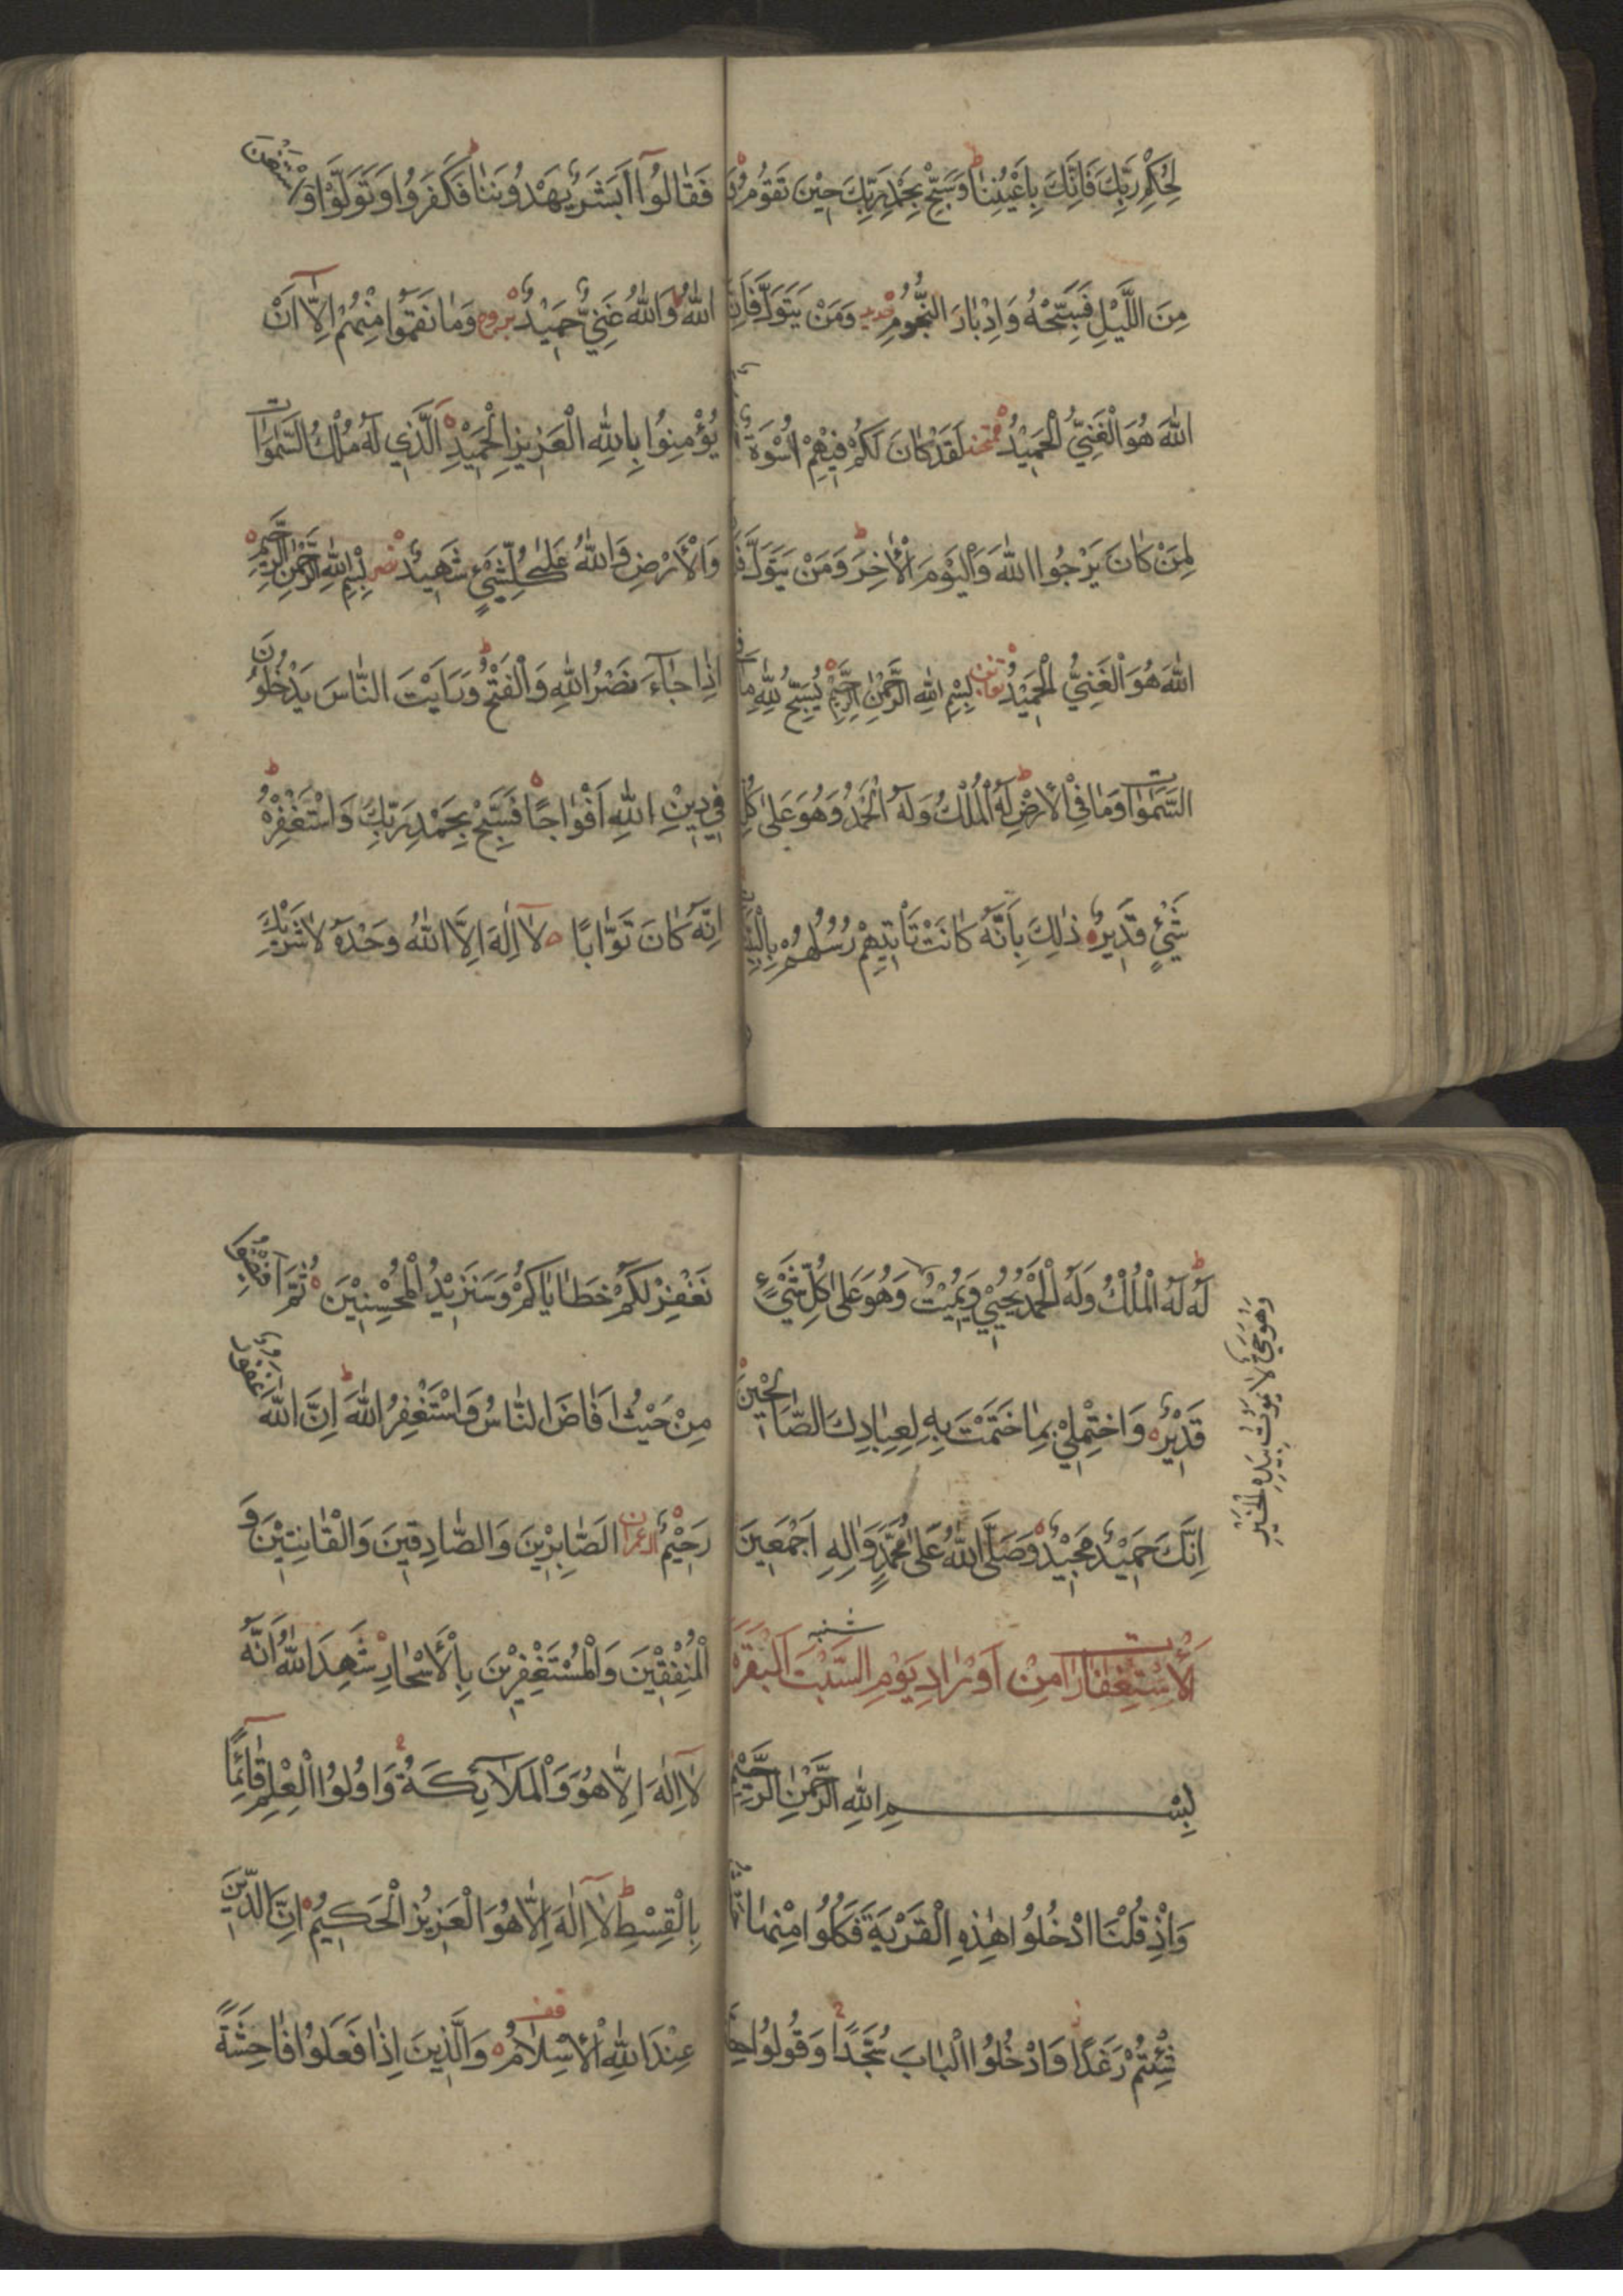 لِحُكْمِ رَبِّكَ فَاِنَّكَ بِاَعْيُنِنَا وَسَبِّحْ بِحَمْدِ رَبِّكَ حِيْنَ تَقُوْمُ وَ
مِنَ اللَّيْلِ فَسَبِّحْهُ وَاِدْبَارَ النُّجُوْمِ حديد وَمَنْ يَتَوَلَّ فَاِنَّ
اللّٰهَ هُوَ الْغَنِيُّ الْحَمِيْدُ ممتحنه لَقَدْ كَانَ لَكُمْ فِيْهِمْ اُسْوَةٌ
لِمَنْ كَانَ يَرْجُوا اللّٰهَ وَالْيَوْمَ الْاٰخِرَ وَمَنْ يَتَوَلَّ
اللّٰهَ هُوَ الْغَنِيُّ الْحَمِيْدُ تغابن بِسْمِ اللّٰهِ الرَّحْمٰنِ الرَّحِيْمِ يُسَبِّحُ لِلّٰهِ مَا فِي
السَّمٰوَاتِ وَمَا فِي الْاَرْضِ لَهُ الْمُلْكُ وَلَهُ الْحَمْدُ وَهُوَ عَلٰى كُلِّ
شَيْءٍ قَدِيْرٌ ذٰلِكَ بِاَنَّهُ كَانَتْ تَأْتِيْهِمْ رُسُلُهُمْ بِالْبَيِّنَاتِ
فَقَالُوْا اَبَشَرٌ يَهْدُوْنَنَا فَكَفَرُوْا وَتَوَلَّوْا وَاسْتَغْنَى
اللّٰهُ وَاللّٰهُ غَنِيٌّ حَمِيْدٌ بروج وَمَا نَقَمُوْا مِنْهُمْ اِلَّا اَنْ
يُؤْمِنُوْا بِاللّٰهِ الْعَزِيْزِ الْحَمِيْدِ الَّذِي لَهُ مُلْكُ السَّمٰوَاتِ
وَالْاَرْضِ وَاللّٰهُ عَلٰى كُلِّ شَيْءٍ شَهِيْدٌ نصر بِسْمِ اللّٰهِ الرَّحْمٰنِ الرَّحِيْمِ
اِذَا جَاءَ نَصْرُ اللّٰهِ وَالْفَتْحُ وَرَاَيْتَ النَّاسَ يَدْخُلُوْنَ
فِي دِيْنِ اللّٰهِ اَفْوَاجًا فَسَبِّحْ بِحَمْدِ رَبِّكَ وَاسْتَغْفِرْهُ
اِنَّهُ كَانَ تَوَّابًا لَا اِلٰهَ اِلَّا اللّٰهُ وَحْدَهُ لَا شَرِيْكَ
لَهُ لَهُ الْمُلْكُ وَلَهُ الْحَمْدُ يُحْيِيْ وَيُمِيْتُ وَهُوَ عَلٰى كُلِّ شَيْءٍ
وَهُوَ حَيٌّ لَا يَمُوْتُ بِيَدِهِ الْخَيْرُ
قَدِيْرٌ وَاخْتِمْ لِيْ بِمَا خَتَمْتَ بِهِ لِعِبَادِكَ الصَّالِحِيْنَ
اِنَّكَ حَمِيْدٌ مَجِيْدٌ وَصَلَّى اللّٰهُ عَلٰى مُحَمَّدٍ وَاٰلِهِ اَجْمَعِيْنَ
اَلْاِسْتِغْفَارَاتِ مِنْ اَوْرَادِ يَوْمِ السَّبْتِ شنبه اَلْبَقَرَة
بِسْمِ اللّٰهِ الرَّحْمٰنِ الرَّحِيْمِ
وَاِذْ قُلْنَا ادْخُلُوْا هٰذِهِ الْقَرْيَةَ فَكُلُوْا مِنْهَا حَيْثُ
شِئْتُمْ رَغَدًا وَادْخُلُوا الْبَابَ سُجَّدًا وَقُولُوْا حِطَّةٌ
نَغْفِرْ لَكُمْ خَطَايَاكُمْ وَسَنَزِيْدُ الْمُحْسِنِيْنَ ثُمَّ اَفِيْضُوْا
مِنْ حَيْثُ اَفَاضَ النَّاسُ وَاسْتَغْفِرُ اللّٰهَ اِنَّ اللّٰهَ غَفُوْرٌ
رَحِيْمٌ ال عمران الصَّابِرِيْنَ وَالصَّادِقِيْنَ وَالْقَانِتِيْنَ وَ
الْمُنْفِقِيْنَ وَالْمُسْتَغْفِرِيْنَ بِالْاَسْحَارِ شَهِدَ اللّٰهُ اَنَّهُ
لَا اِلٰهَ اِلَّا هُوَ وَالْمَلَائِكَةُ وَاُولُوا الْعِلْمِ قَائِمًا
بِالْقِسْطِ لَا اِلٰهَ اِلَّا هُوَ الْعَزِيْزُ الْحَكِيْمُ اِنَّ الدِّيْنَ
عِنْدَ اللّٰهِ الْاِسْلَامُ قف وَالَّذِيْنَ اِذَا فَعَلُوْا فَاحِشَةً